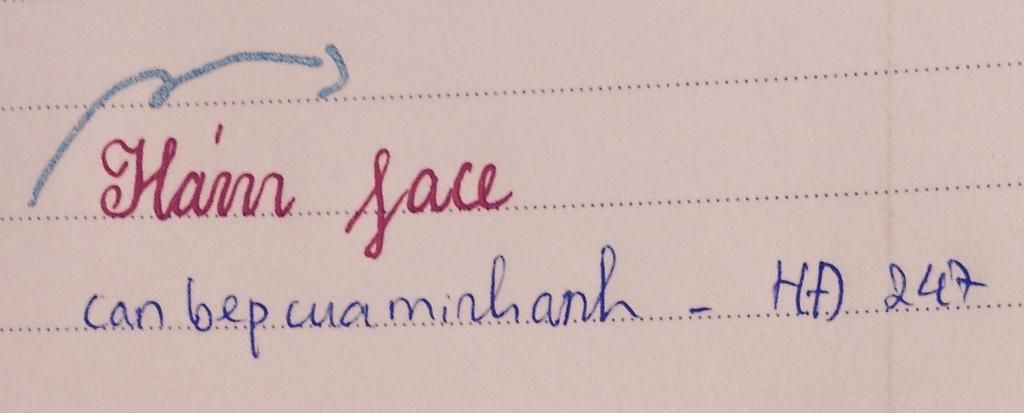 Hám face
canbepcuaminhanh - HĐ 247